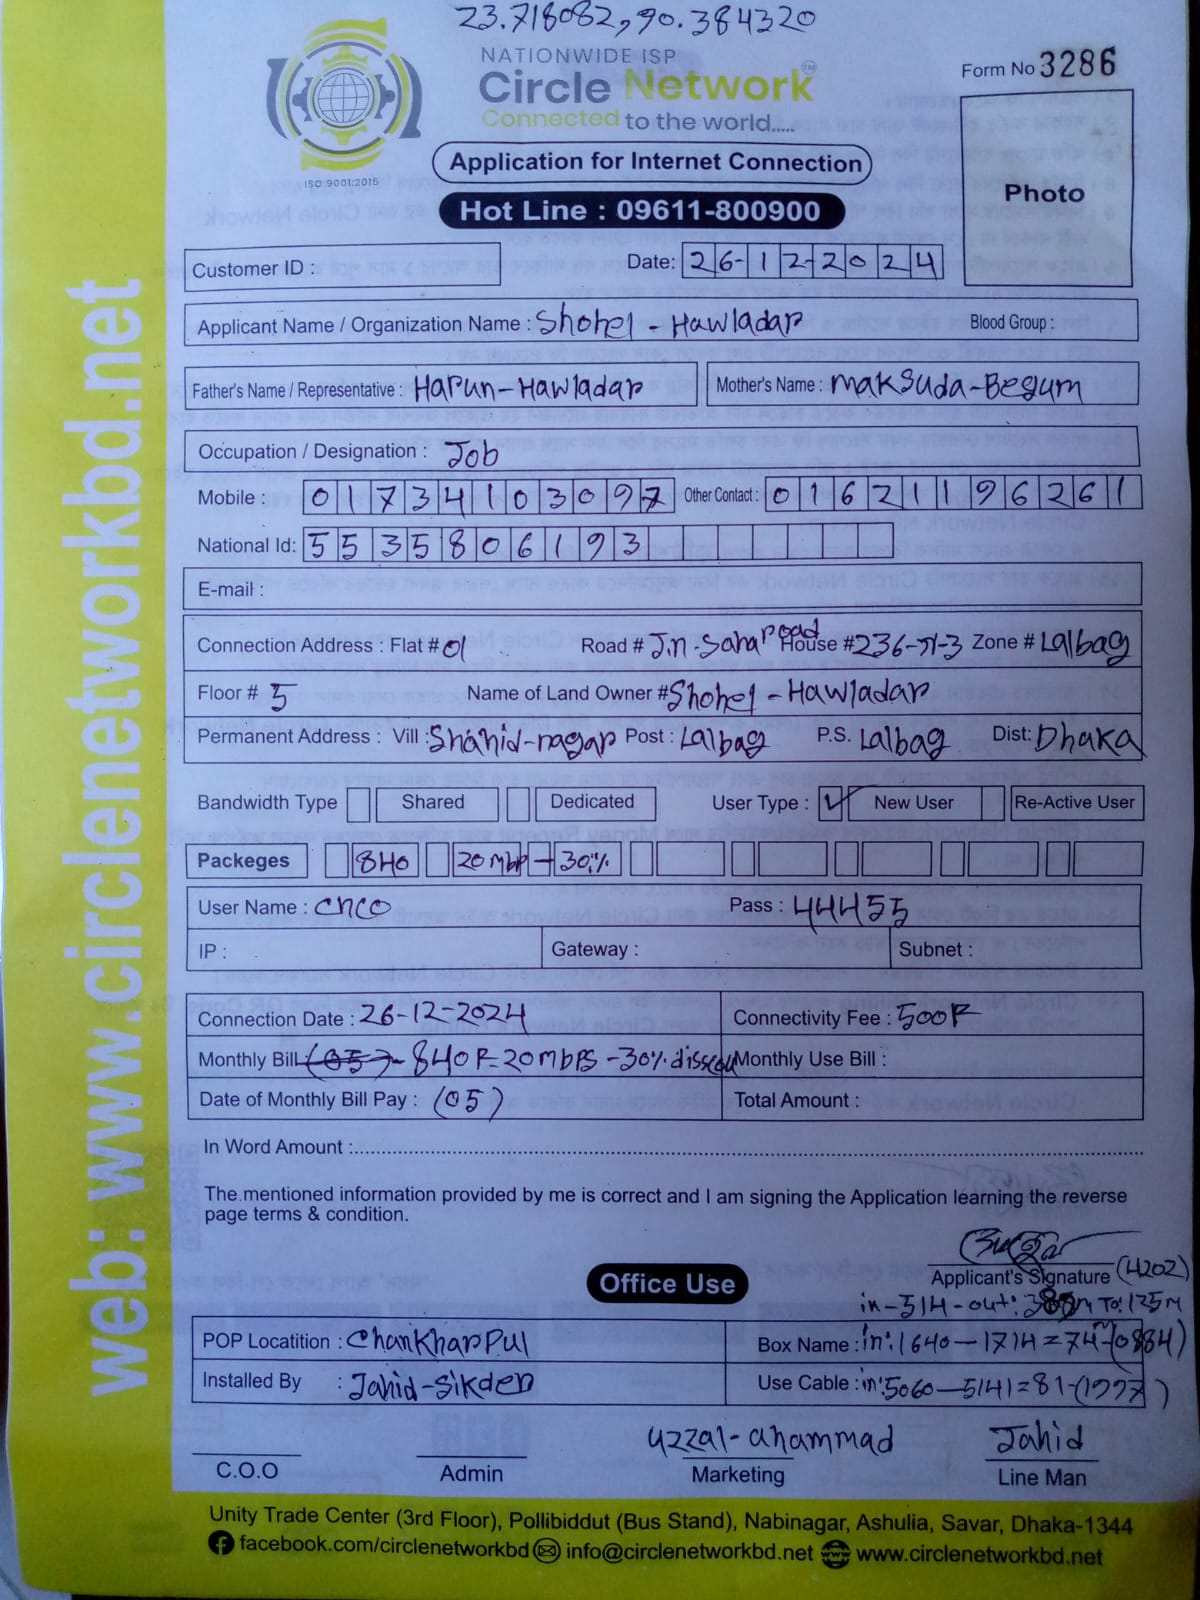 23.718082,90.384320
NATIONWIDE ISP
Circle Network
Connected to the world.....
ISO 9001:2015
Form No 3286
Application for Internet Connection
Hot Line : 09611-800900
Photo
Customer ID :
Date: 26-12-2024
Applicant Name / Organization Name : Shohel - Hawladar Blood Group :
Father's Name / Representative : Harun-Hawladar Mother's Name : Maksuda-Begum
Occupation / Designation : Job
Mobile : 01734103097 Other Contact : 01621196261
National Id: 5535806193
E-mail :
Connection Address : Flat # 01 Road # J.n. Saha road House #236-71-3 Zone # Lalbag
Floor # 5 Name of Land Owner # Shohel - Hawladar
Permanent Address : Vill : Shahid-nagar Post : Lalbag P.S. Lalbag Dist: Dhaka
Bandwidth Type Shared Dedicated User Type : ✓ New User Re-Active User
Packeges 840 20 mbp - 30%
User Name : cnco Pass : 44455
IP : Gateway : Subnet :
Connection Date : 26-12-2024 Connectivity Fee : 500
Monthly Bill : (05) - 840 20 mbps - 30% Monthly Use Bill :
Date of Monthly Bill Pay : (05) Total Amount :
In Word Amount :
The mentioned information provided by me is correct and I am signing the Application learning the reverse
page terms & condition.
Office Use
Applicant's Signature (4202)
in-514-out: To: 125m
POP Locatition : Chankharpul Box Name : in: 1640-1714=74m-(0884)
Installed By : Jahid-Sikder Use Cable : in: 5060-5141=81-(1997)
uzzal-ahammad Jahid
C.O.O Admin Marketing Line Man
Unity Trade Center (3rd Floor), Pollibiddut (Bus Stand), Nabinagar, Ashulia, Savar, Dhaka-1344
facebook.com/circlenetworkbd info@circlenetworkbd.net www.circlenetworkbd.net
web: www.circlenetworkbd.net